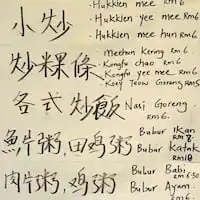 小炒
· Hukkien mee RM6
· Hukkien yee mee RM6
· Hukkien mee hun RM6
炒粿條
Meehun Kering RM6.
Kongfu chao RM6
Kongfu yee mee RM6
Koey Teow Goreng RM6
各式炒飯
Nasi Goreng RM6
魚片粥,田鸡粥
Bubur Ikan RM8
Bubur Katak RM10
肉片粥,鸡粥
Bubur Babi RM6.50
Bubur Ayam RM6.